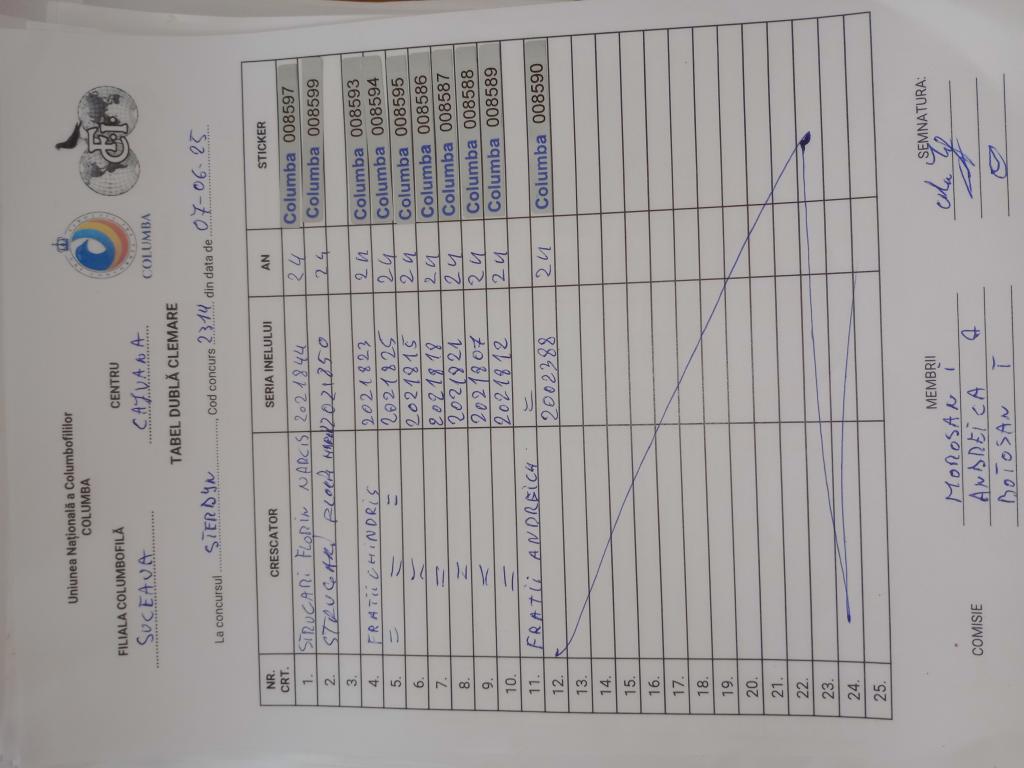 Uniunea Națională a Columbofililor
COLUMBA
FCI
COLUMBA
FILIALA COLUMBOFILĂ CENTRU
SUCEAVA CAJVANA
TABEL DUBLĂ CLEMARE
La concursul STERDYN, Cod concurs 2314 din data de 07-06-25
NR. CRT. CRESCATOR SERIA INELULUI AN STICKER
1. STRUGARI FLORIN NARCIS 2021844 24 Columba 008597
2. STRUGARI 2021850 24 Columba 008599
3.
4. FRATII CHINDRIS 2021823 24 Columba 008593
5. = = = 2021825 24 Columba 008594
6. = 2021815 24 Columba 008595
7. = 2021818 24 Columba 008586
8. = 2021821 24 Columba 008587
9. = 2021807 24 Columba 008588
10. = 2021812 24 Columba 008589
11. FRATII ANDREICA = 2002388 24 Columba 008590
12.
13.
14.
15.
16.
17.
18.
19.
20.
21.
22.
23.
24.
25.
COMISIE MEMBRII SEMNATURA:
MOROSAN I
ANDREICA A
BOTOSAN I